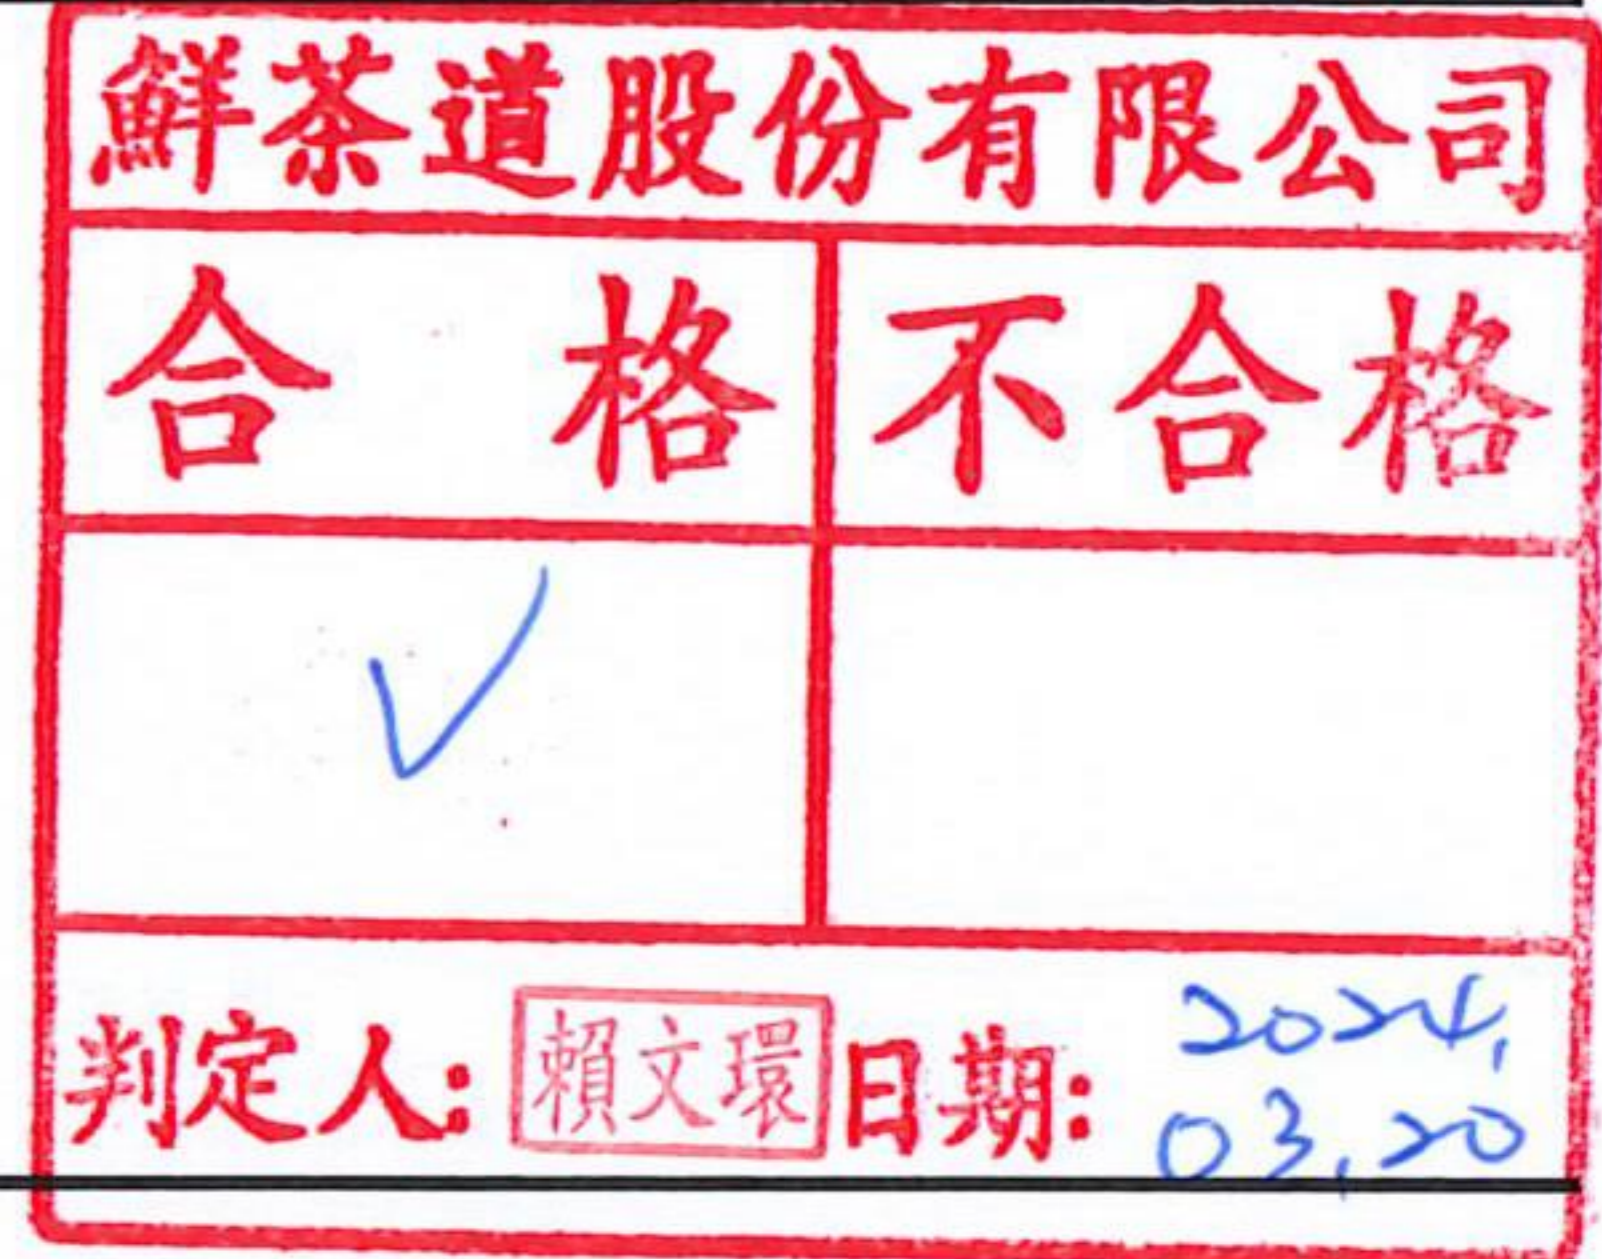 鮮茶道股份有限公司
合格 不合格
✓
判定人: 賴文環 日期: 2024.
03.20